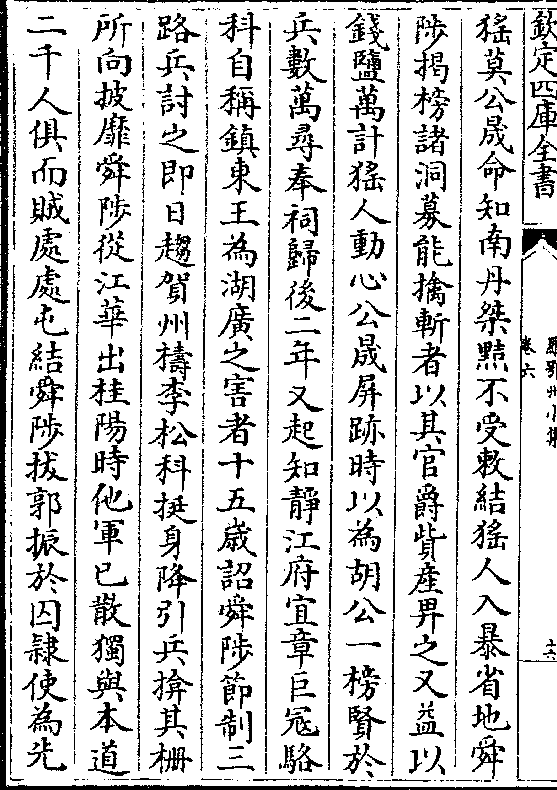 欽定四庫全書
卷六
猺莫公晟命知南丹桀黠不受敕結猺人入暴省地舜
陟揭榜諸洞募能擒斬者以其官爵貲產畀之又益以
錢鹽萬計猺人動心公晟屏跡時以為胡公一榜賢於
兵數萬尋奉祠歸後二年又起知靜江府宜章巨冦駱
科自稱鎮東王為湖廣之害者十五歲詔舜陟節制三
路兵討之即日趨賀州擣李松科挺身降引兵揜其栅
所向披靡舜陟從江華出桂陽時他軍已散獨與本道
二千人俱而賊處處屯結舜陟拔郭振於囚隷使為先